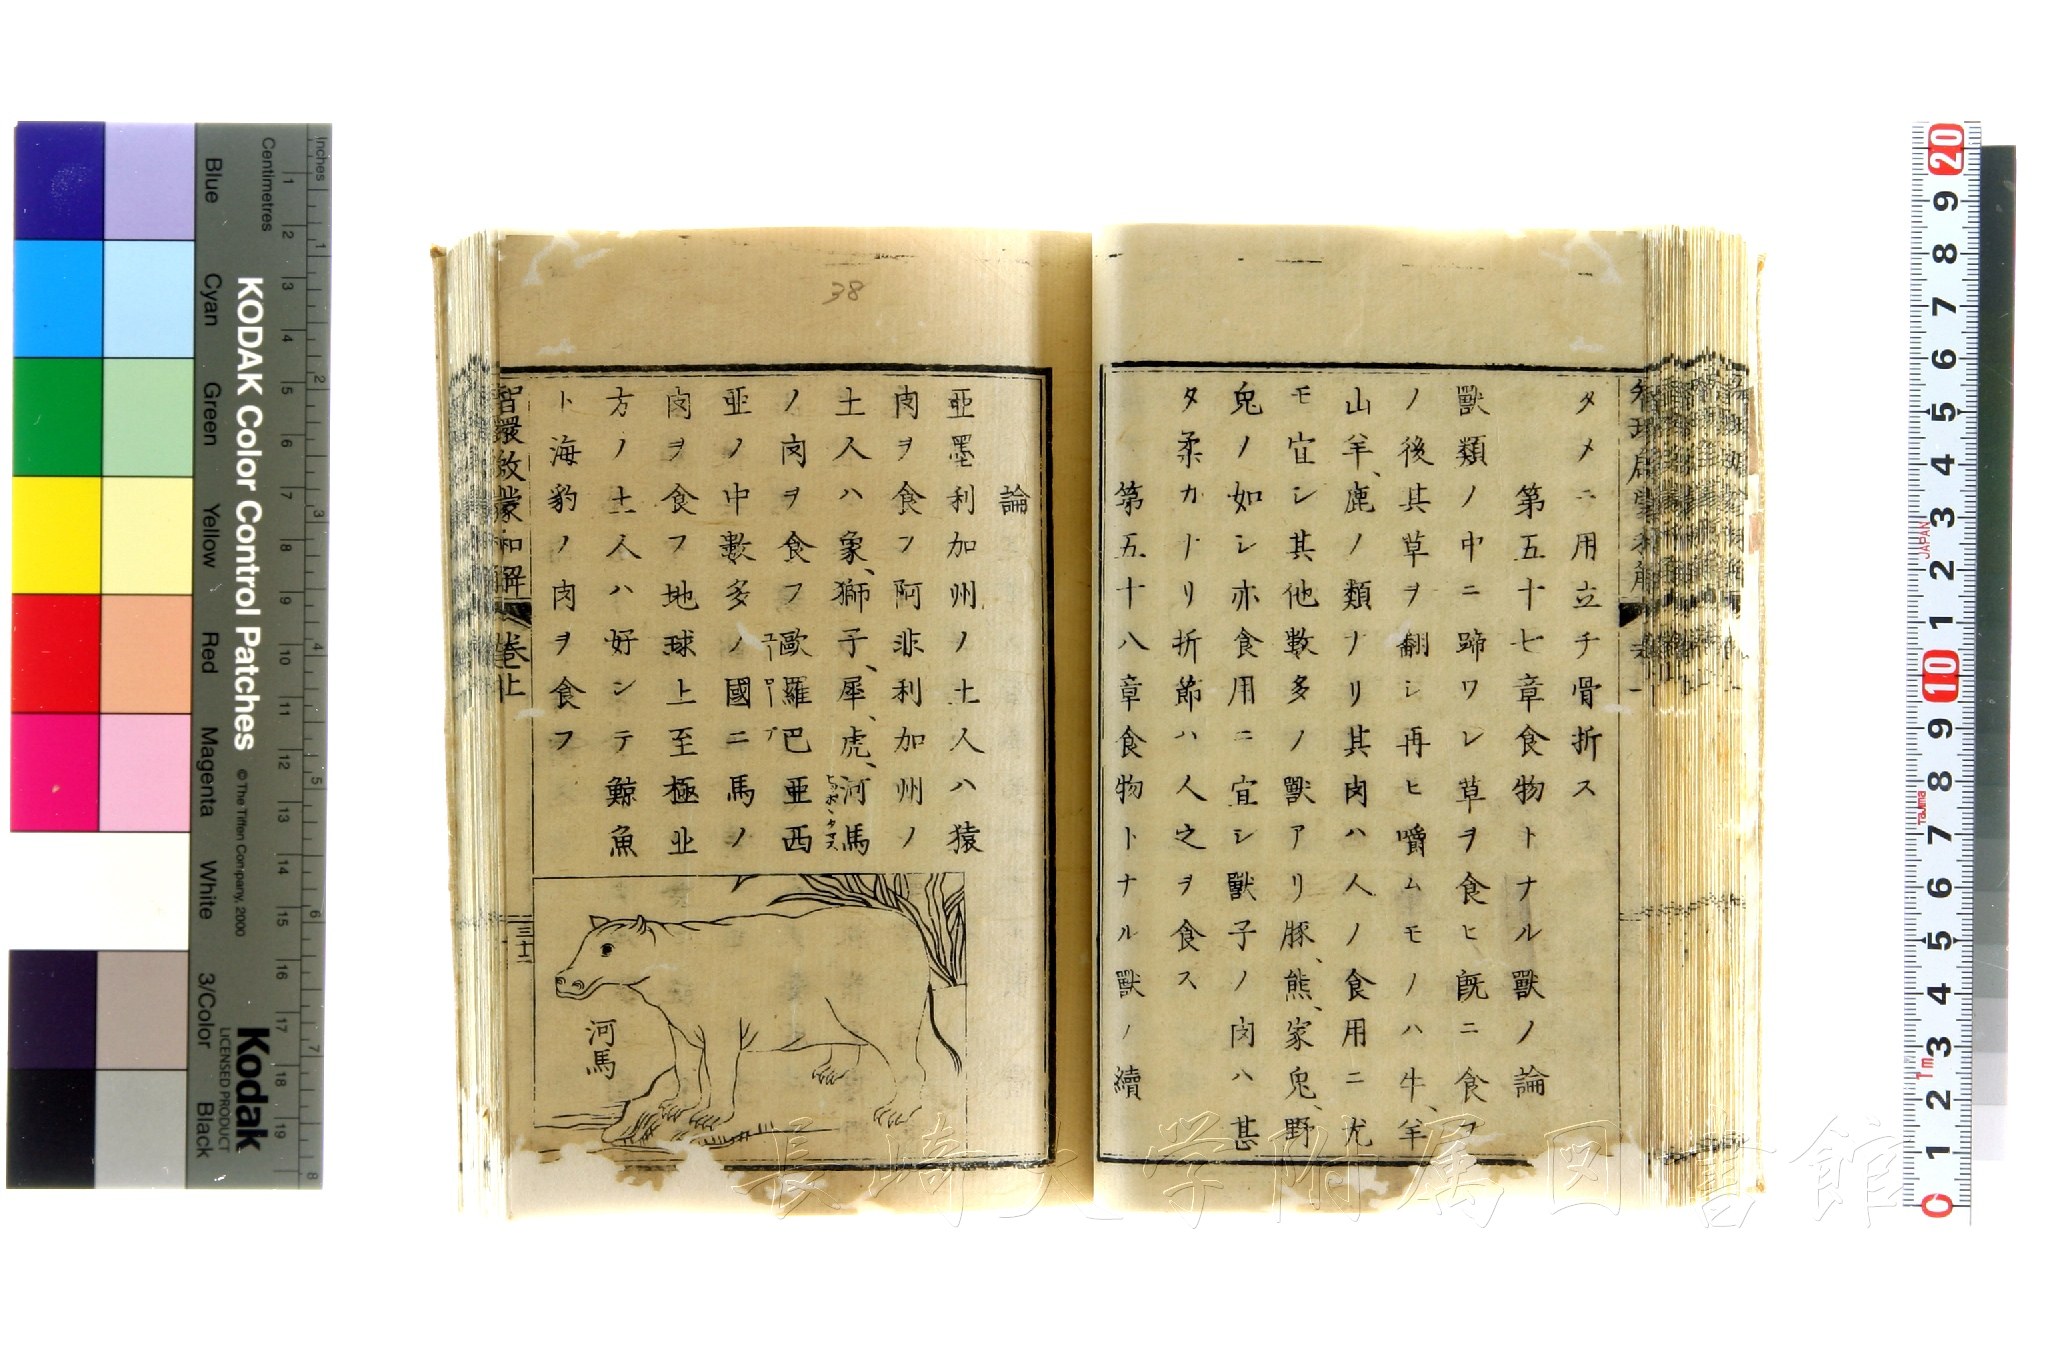 タメニ用立チ骨折ス
第五十七章食物トナル獸ノ論
獸類ノ中ニ蹄ワレ草ヲ食ヒ既ニ食フ
ノ後其草ヲ翻シ再ヒ嚼ムモノハ牛、羊
山羊、鹿ノ類ナリ其肉ハ人ノ食用ニ尤
モ宜シ其他數多ノ獸アリ豚、熊、家兎、野
兎ノ如シ亦食用ニ宜シ獸子ノ肉ハ甚
タ柔カナリ折節ハ人之ヲ食ス
第五十八章食物トナル獸ノ續
論
亜墨利加州ノ土人ハ猿
肉ヲ食フ阿非利加州ノ
土人ハ象、獅子、犀、虎、河馬
ノ肉ヲ食フ歐羅巴亜西
亜ノ中數多ノ國ニ馬ノ
肉ヲ食フ地球上至極北
方ノ土人ハ好シテ鯨魚
ト海豹ノ肉ヲ食フ
河馬
智環啟蒙和解
卷上
三十二
38
KODAK Color Control Patches
© The Tiffen Company, 2000
Kodak
LICENSED PRODUCT
Inches
Centimetres
1 2 3 4 5 6 7 8 9 10 11 12 13 14 15 16 17 18 19
1 2 3 4 5 6 7 8
Blue
Cyan
Green
Yellow
Red
Magenta
White
3/Color
Black
20 9 8 7 6 5 4 3 2 1 10 9 8 7 6 5 4 3 2 1 0
JAPAN
Tajima
長崎大学附属図書館